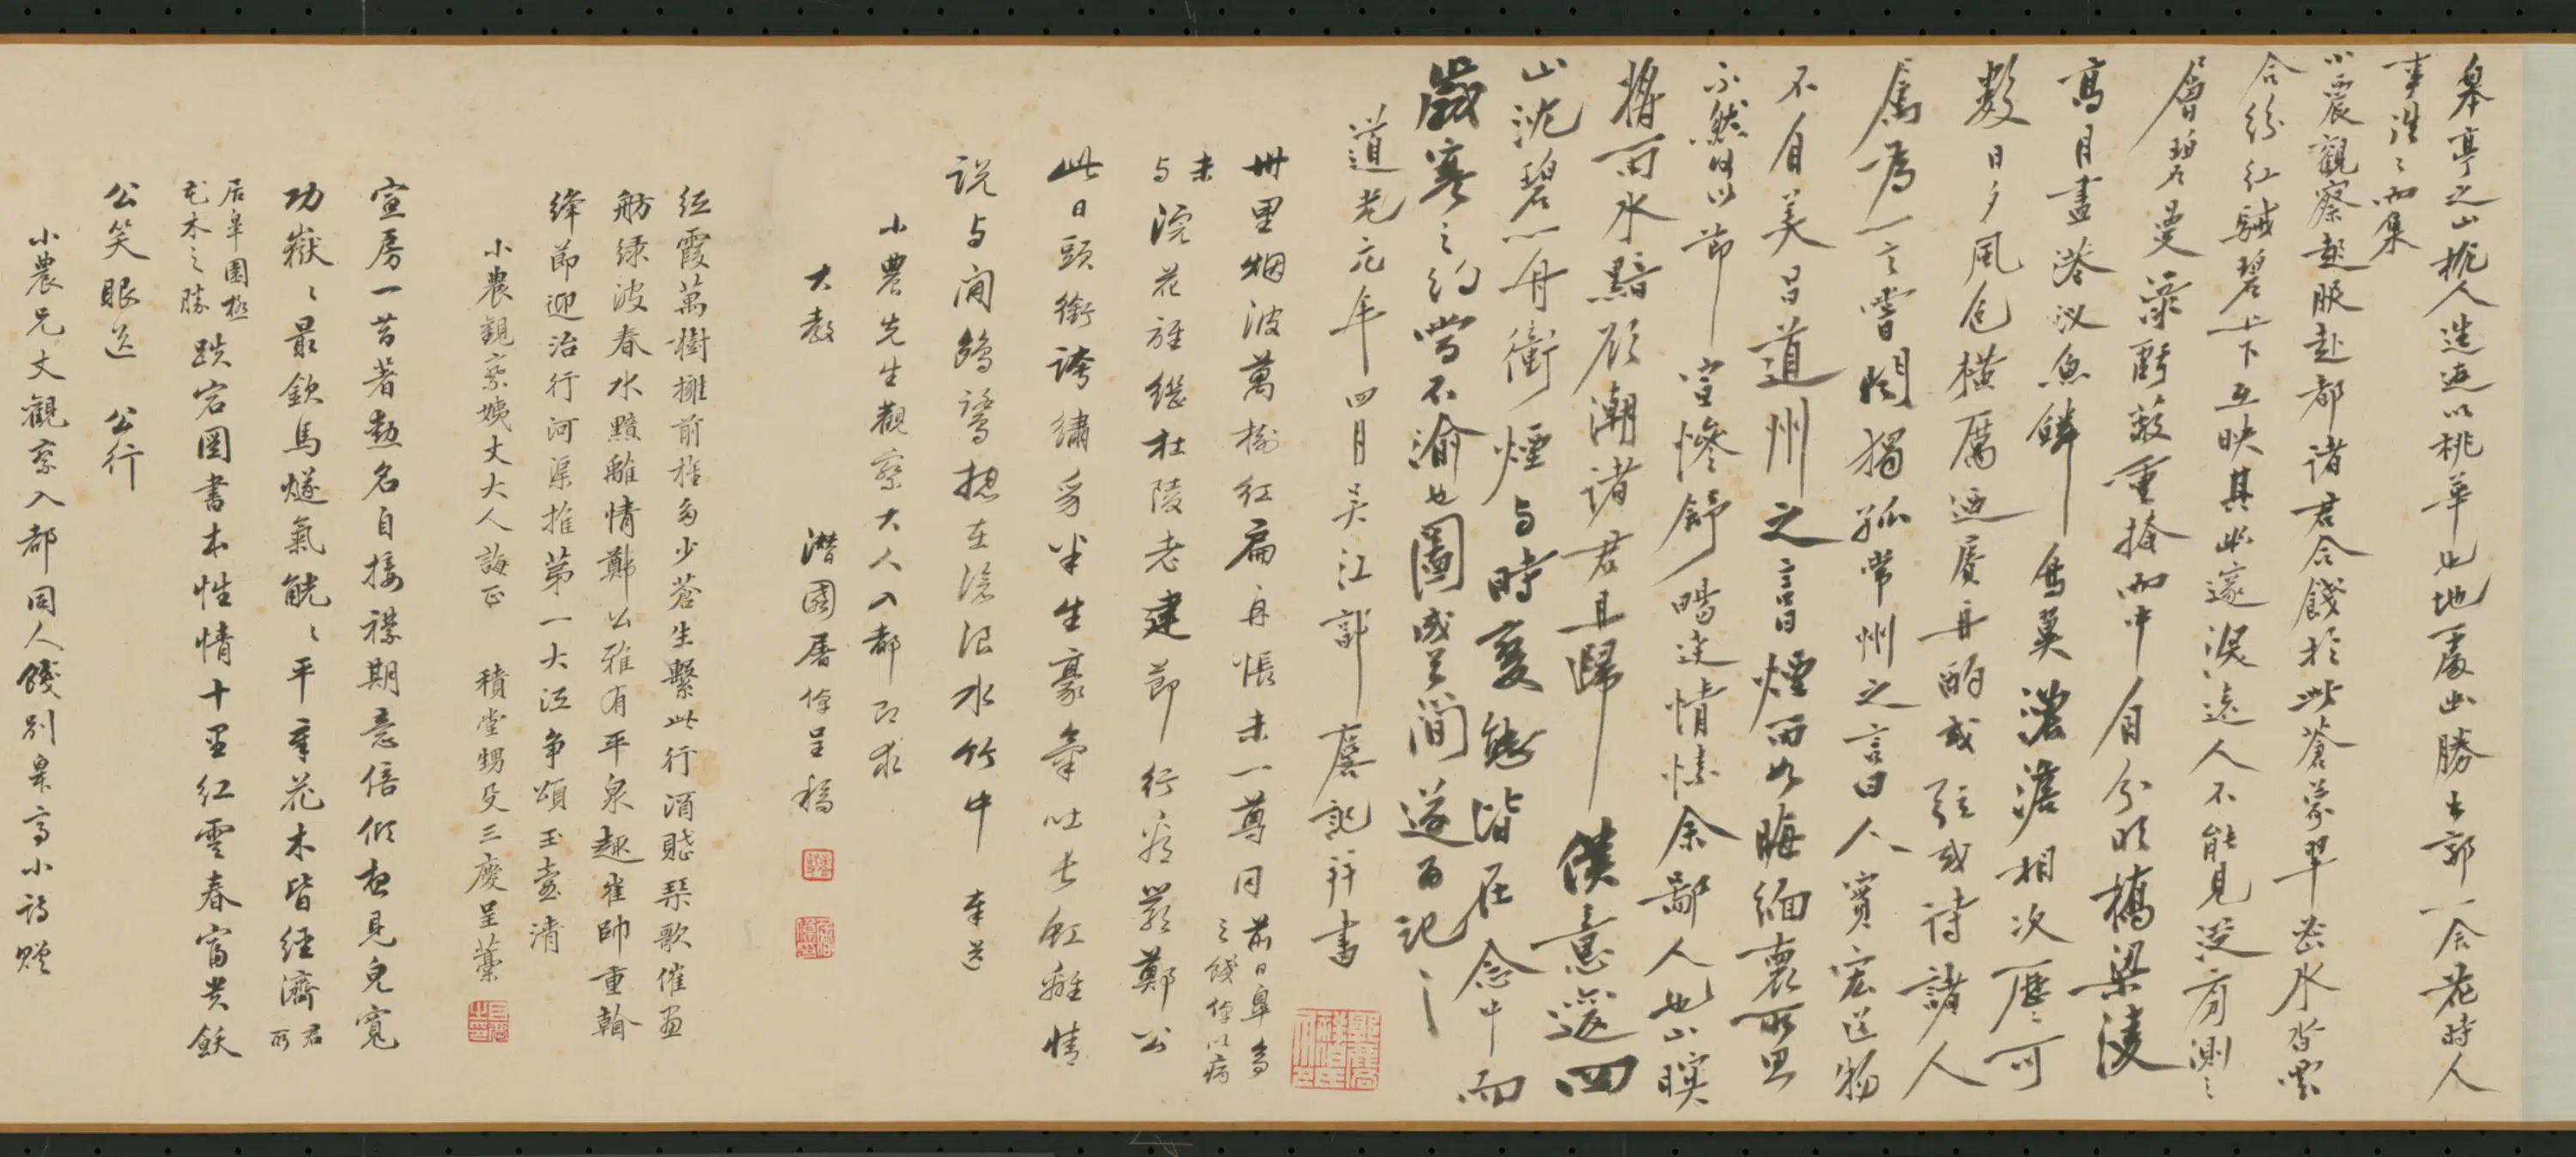 皋亭之山桃人迷迹以桃華也地處幽勝出郭一舍花時人
事浩〻而集
小農觀察起服赴都諸君合餞於此蒼蒙翠密水沓雲
合紛紅駴碧上下互映其幽邃深遠人不能見泛舟測〻
層碧曼淥虧蔽重掩而中自分明橋梁淩
高目盡澄汲魚鱗無算濃澹相次歷歷可
數日夕風色橫厲迺賡舟酌或歌或詩諸人
屬為一言嘗聞獨孤常州之言曰人實宏道物
不自美昌道州之言曰煙雨如晦緬裏所思
不然何以節宣慘舒暢達情愫余鄙人也山暝
將雨水黯欲潮諸君且歸僕意返四
山沈碧一舟衝煙與時變態皆在念中而
歲寒之約當不渝也圖成其間遂為記〻
道光元年四月吴江郭麐記并書
卅里烟波萬樹紅扁舟悵未一尊同前日皋亭之餞倬以病
未与浣花雖繼杜陵老建節行看罷鄭公
此日頭銜誇繡豸半生豪氣吐長虹離情
説与閒鷗鷺總在滄浪水竹中 奉送
小農先生觀察大人入都即求
大教 潛園屠倬呈稿
紅霞萬樹擁前旌多少蒼生繫此行酒賤琴歌催畫
舫緑波春水黯離情鄭公雅有平泉趣雀帥重翰
絳節迎治行河渠推第一大江争頌玉壺清
小農觀察姨丈大人誨正 積堂甥殳三慶呈藳
宣房一昔著勲名自接襟期意倍傾想見兒寬
功嶽〻最欽馬燧氣觥〻平章花木皆經濟君所
居皋園極花木之勝跌宕圖書本性情十里紅雲春富貴飫
公笑眼送 公行
小農兄丈觀察入都同人餞别皋亭小詩贈